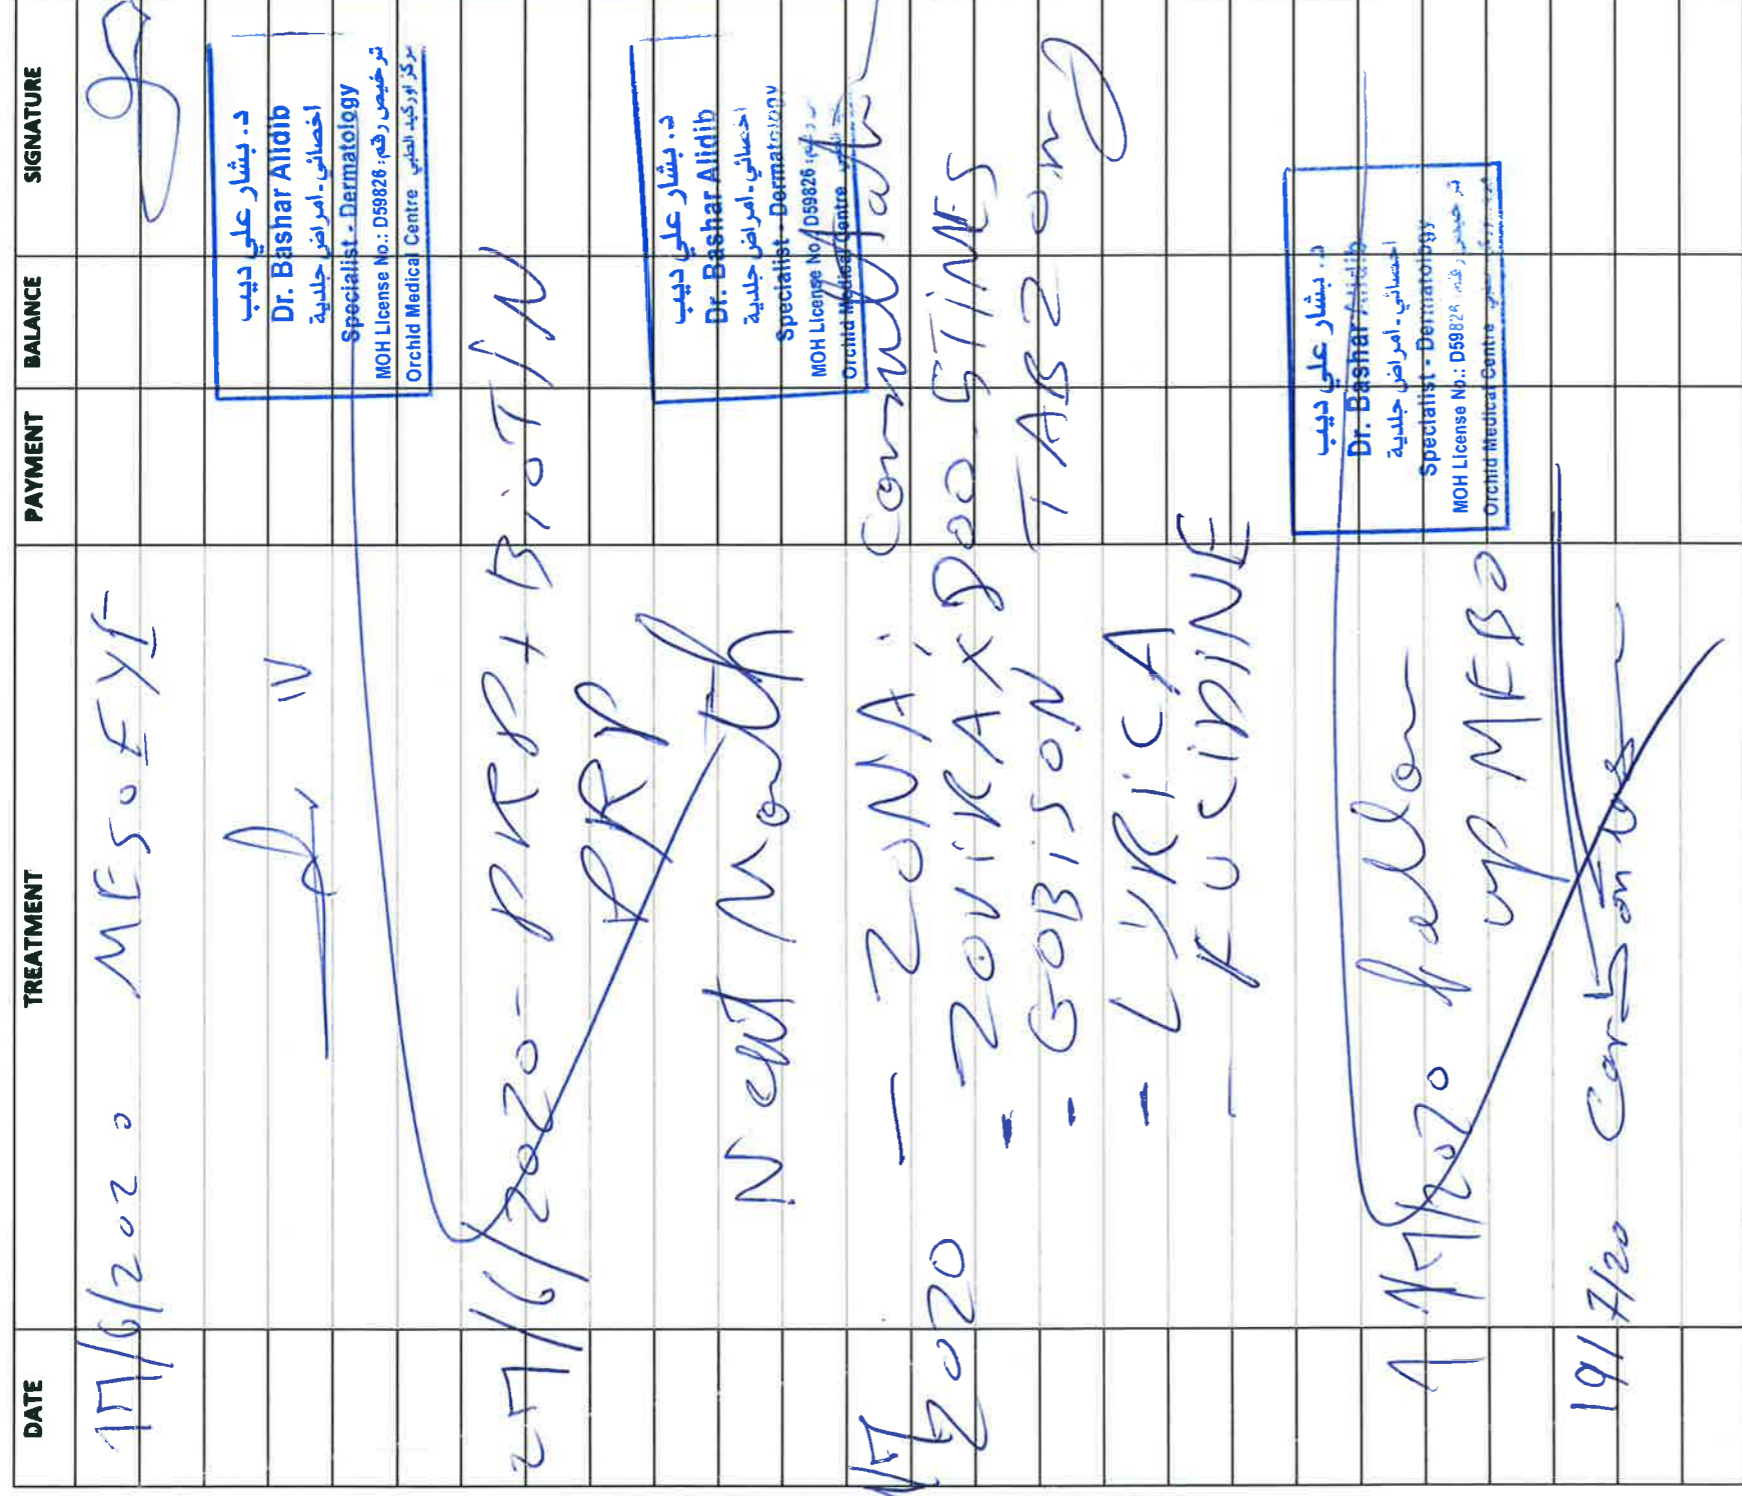 DATE TREATMENT PAYMENT BALANCE SIGNATURE
17/6/2020 MESOEYE
IV
د. بشار علي ديب
Dr. Bashar Alidib
اخصائي - امراض جلدية
Specialist - Dermatology
MOH License No.: D59826 ترخيص رقم:
Orchid Medical Centre مركز اوركيد الطبي
27/6/2020 - PRP + BiOTIN
PRP
Next Month
د. بشار علي ديب
Dr. Bashar Alidib
اخصائي - امراض جلدية
Specialist - Dermatology
MOH License No. D59826
Orchid Medical Centre
2020 — ZONA :
- ZOViRAX 800 5TiMES
- GOBiSON TAB 20mg
- LYRiCA
- FUCiDiNE
د. بشار علي ديب
Dr. Bashar Alidib
اخصائي - امراض جلدية
Specialist - Dermatology
MOH License No.: D59826 ترخيص رقم:
Orchid Medical Centre
7/2020 follow
up MEBO
19/7/20